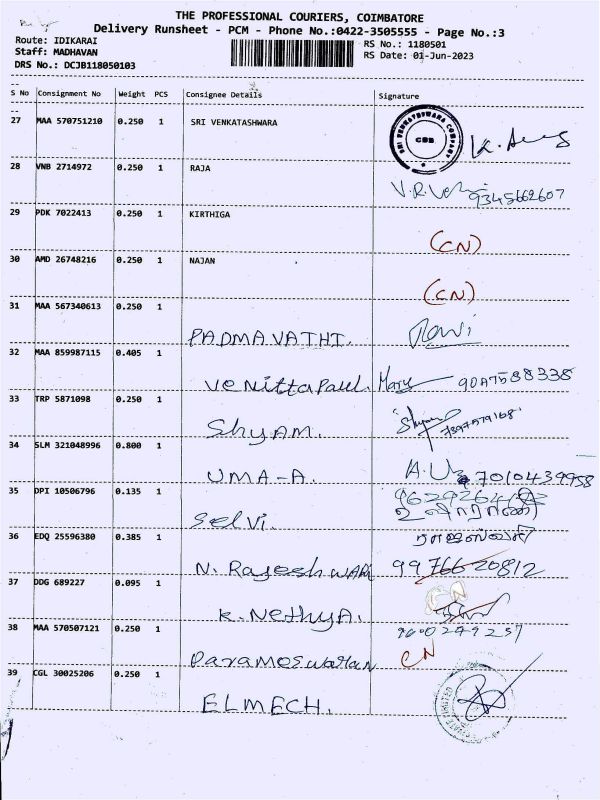 THE PROFESSIONAL COURIERS, COIMBATORE
Delivery Runsheet - PCM - Phone No.:0422-3505555 - Page No.:3
Route: IDIKARAI
RS No.: 1180501
Staff: MADHAVAN
RS Date: 01-Jun-2023
DRS No.: DCJB118050103
S No Consignment No Weight PCS Consignee Details Signature
27 MAA 570751210 0.250 1 SRI VENKATASHWARA
SRI VENKATESHWARA COMPANY CBE
28 VNB 2714972 0.250 1 RAJA
9345662607
29 PDK 7022413 0.250 1 KIRTHIGA
(CN)
30 AMD 26748216 0.250 1 NAJAN
(CN)
31 MAA 567340613 0.250 1
PADMAVATHI. Ravi
32 MAA 859987115 0.405 1
Venitta Paul. Mary
33 TRP 5871098 0.250 1
Shyam. Shyam
34 SLM 321048996 0.800 1
UMA-A. 7010439958
35 DPI 10506796 0.135 1
Selvi.
36 EDQ 25596380 0.385 1
N. Rajeshwari 9976620812
37 DDG 689227 0.095 1
CN
K. Nethya.
38 MAA 570507121 0.250 1
Parameswaran CN
39 CGL 30025206 0.250 1
ELMECH.